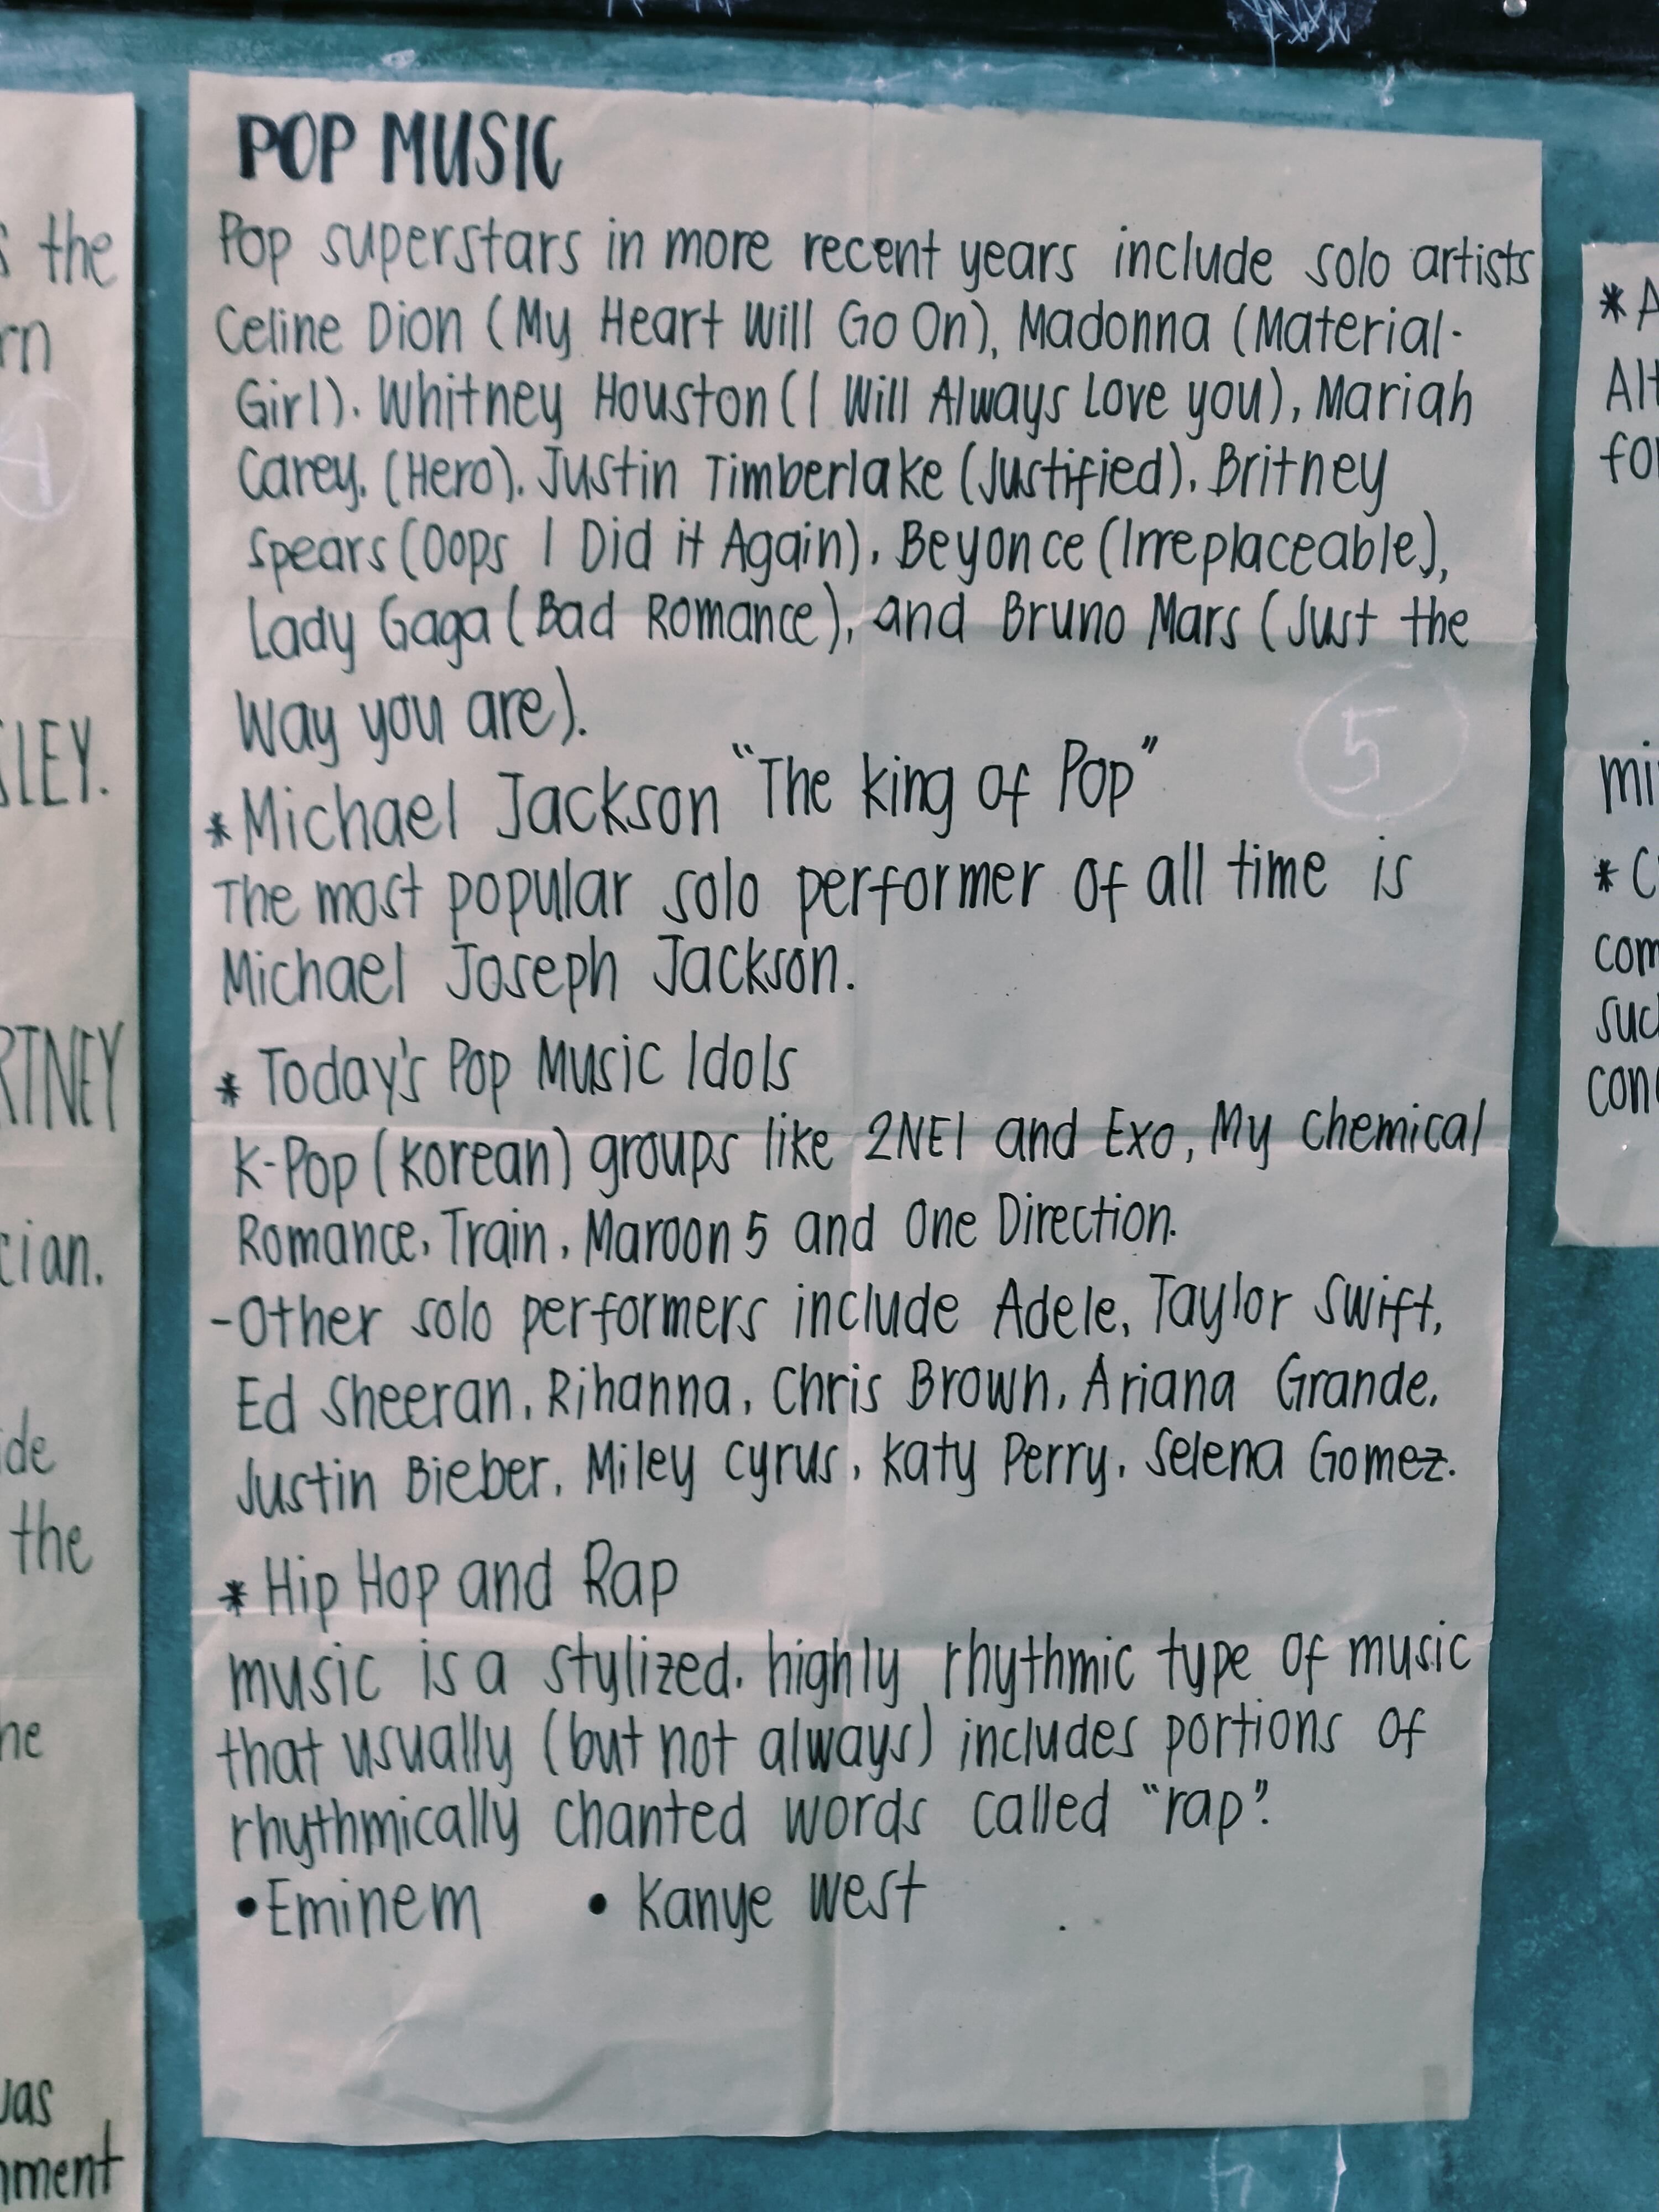 POP MUSIC
Pop superstars in more recent years include solo artists
Celine Dion (My Heart Will Go On), Madonna (Material-
Girl). Whitney Houston (I Will Always Love you), Mariah
Carey. (Hero). Justin Timberlake (Justified), Britney
Spears (Oops I Did it Again), Beyonce (Irreplaceable),
Lady Gaga (Bad Romance), and Bruno Mars (Just the
Way you are).
5
*Michael Jackson "The King of Pop"
The most popular solo performer of all time is
Michael Joseph Jackson.
* Today's Pop Music Idols
K-Pop (Korean) groups like 2NE1 and Exo, My chemical
Romance, Train, Maroon 5 and One Direction.
-Other solo performers include Adele, Taylor Swift,
Ed Sheeran, Rihanna, Chris Brown, Ariana Grande,
Justin Bieber, Miley Cyrus, Katy Perry, Selena Gomez.
* Hip Hop and Rap
music is a stylized. highly rhythmic type of music
that usually (but not always) includes portions of
rhythmically chanted words called "rap".
•Eminem • Kanye West
the
SLEY.
RTNEY
cian.
ide
the
he
was
nment
* A
Alt
for
mi
* C
com
suc
con